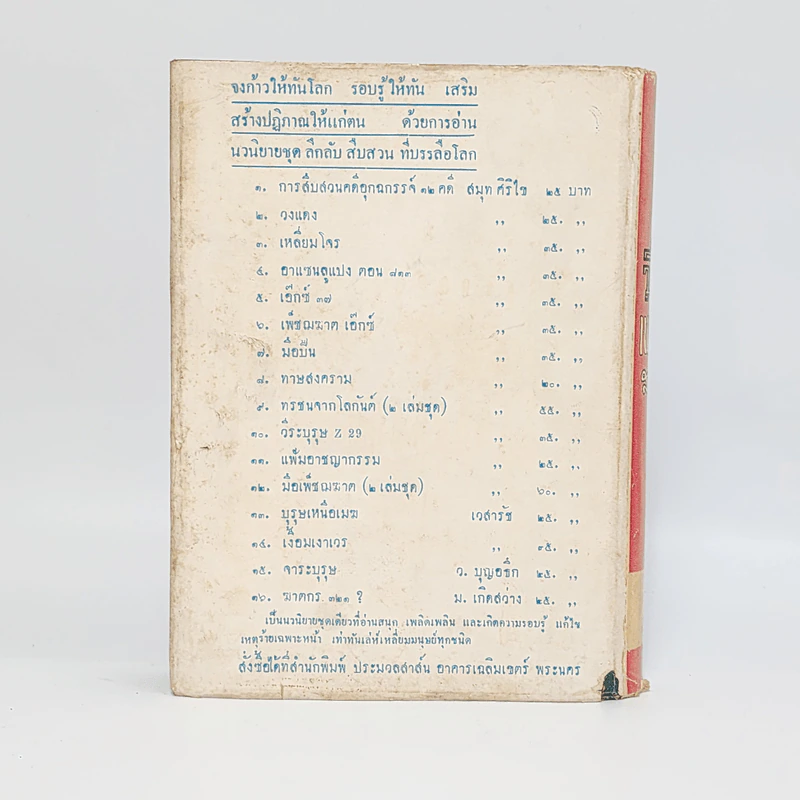 จงก้าวให้ทันโลก รอบรู้ให้ทัน เสริม
สร้างปฏิภาณให้แก่ตน ด้วยการอ่าน
นวนิยายชุด ลึกลับ สืบสวน ที่บรรลือโลก
๑. การสืบสวนคดีอุกฉกรรจ์ ๑๒ คดี สมุท ศิริไข ๒๕ บาท
๒. วงแดง ,, ๒๕. ,,
๓. เหลี่ยมโจร ,, ๓๕. ,,
๔. อาแซนลูแปง ตอน ๘๑๓ ,, ๓๕. ,,
๕. เอ๊กซ์ ๓๗ ,, ๓๕. ,,
๖. เพ็ชฌฆาต เอ๊กซ์ ,, ๓๕. ,,
๗. มือปืน ,, ๓๕. ,,
๘. ทาษสงคราม ,, ๒๐. ,,
๙. ทรชนจากโลกันต์ (๒ เล่มชุด) ,, ๕๕. ,,
๑๐. วีระบุรุษ Z 29 ,, ๓๕. ,,
๑๑. แฟ้มอาชญากรรม ,, ๒๕. ,,
๑๒. มือเพ็ชฌฆาต (๒ เล่มชุด) ,, ๖๐. ,,
๑๓. บุรุษเหนือเมฆ เวสารัช ๒๕. ,,
๑๔. เงื้อมเงาเวร ,, ๙๕. ,,
๑๕. จาระบุรุษ ว. บุญอธึก ๒๕. ,,
๑๖. ฆาตกร ๓๒๑ ? ม. เกิดสว่าง ๒๕. ,,
เป็นนวนิยายชุดเดียวที่อ่านสนุก เพลิดเพลิน และเกิดความรอบรู้ แก้ไข
เหตุร้ายเฉพาะหน้า เท่าทันเล่ห์เหลี่ยมมนุษย์ทุกชนิด
สั่งซื้อได้ที่สำนักพิมพ์ ประมวลสาส์น อาคารเฉลิมเขตร์ พระนคร